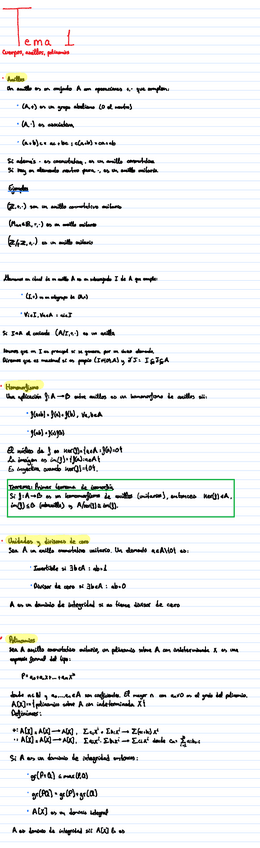 Tema 1
Cuerpos, anillos, polinomios
Anillos
Un anillo es un conjunto A con operaciones +,· que cumplen:
· (A,+) es un grupo abeliano (0 el neutro)
· (A,·) es asociativa
· (a+b)c = ac+bc ; c(a+b) = ca+cb
Si además · es conmutativa, es un anillo conmutativo
Si hay un elemento neutro para ·, es un anillo unitario
Ejemplos
(Z,+,·) son un anillo conmutativo unitario
es un anillo unitario
es un anillo unitario
Llamamos un ideal de un anillo A es un subconjunto I de A que cumple:
· (I,+) es un subgrupo de (A,+)
Si I≠A el cociente (A/I,+,·) es un anillo
Diremos que I es principal si se genera por un único elemento
Diremos que es maximal si es propio
Homomorfismo
Una aplicación f: A → B entre anillos es un homomorfismo de anillos sii:
· f(a+b) = f(a)+f(b), ∀a,b∈A
· f(ab) = f(a)f(b)
El núcleo de f es
La imagen es
Es inyectiva cuando
Teorema: Primer teorema de isomorfía
Si f: A→B es un homomorfismo de anillos (unitarios), entonces
Unidades y divisores de cero
Sea A un anillo conmutativo unitario. Un elemento a∈A\{0} es:
· Invertible si ∃b∈A : ab=1
· Divisor de cero si ∃b∈A : ab=0
A es un dominio de integridad si no tiene divisor de cero
Polinomios
Sea A anillo conmutativo unitario, un polinomio sobre A con indeterminada X es una
expresión formal del tipo:
son coeficientes. El mayor n con an≠0 es el grado del polinomio.
A[X] = {polinomios sobre A con indeterminada X}
Definimos:
Si A es un dominio de integridad entonces:
· gr(PQ) = gr(P)+gr(Q)
· A[X] es un dominio integral
A es dominio de integridad sii A[X] lo es